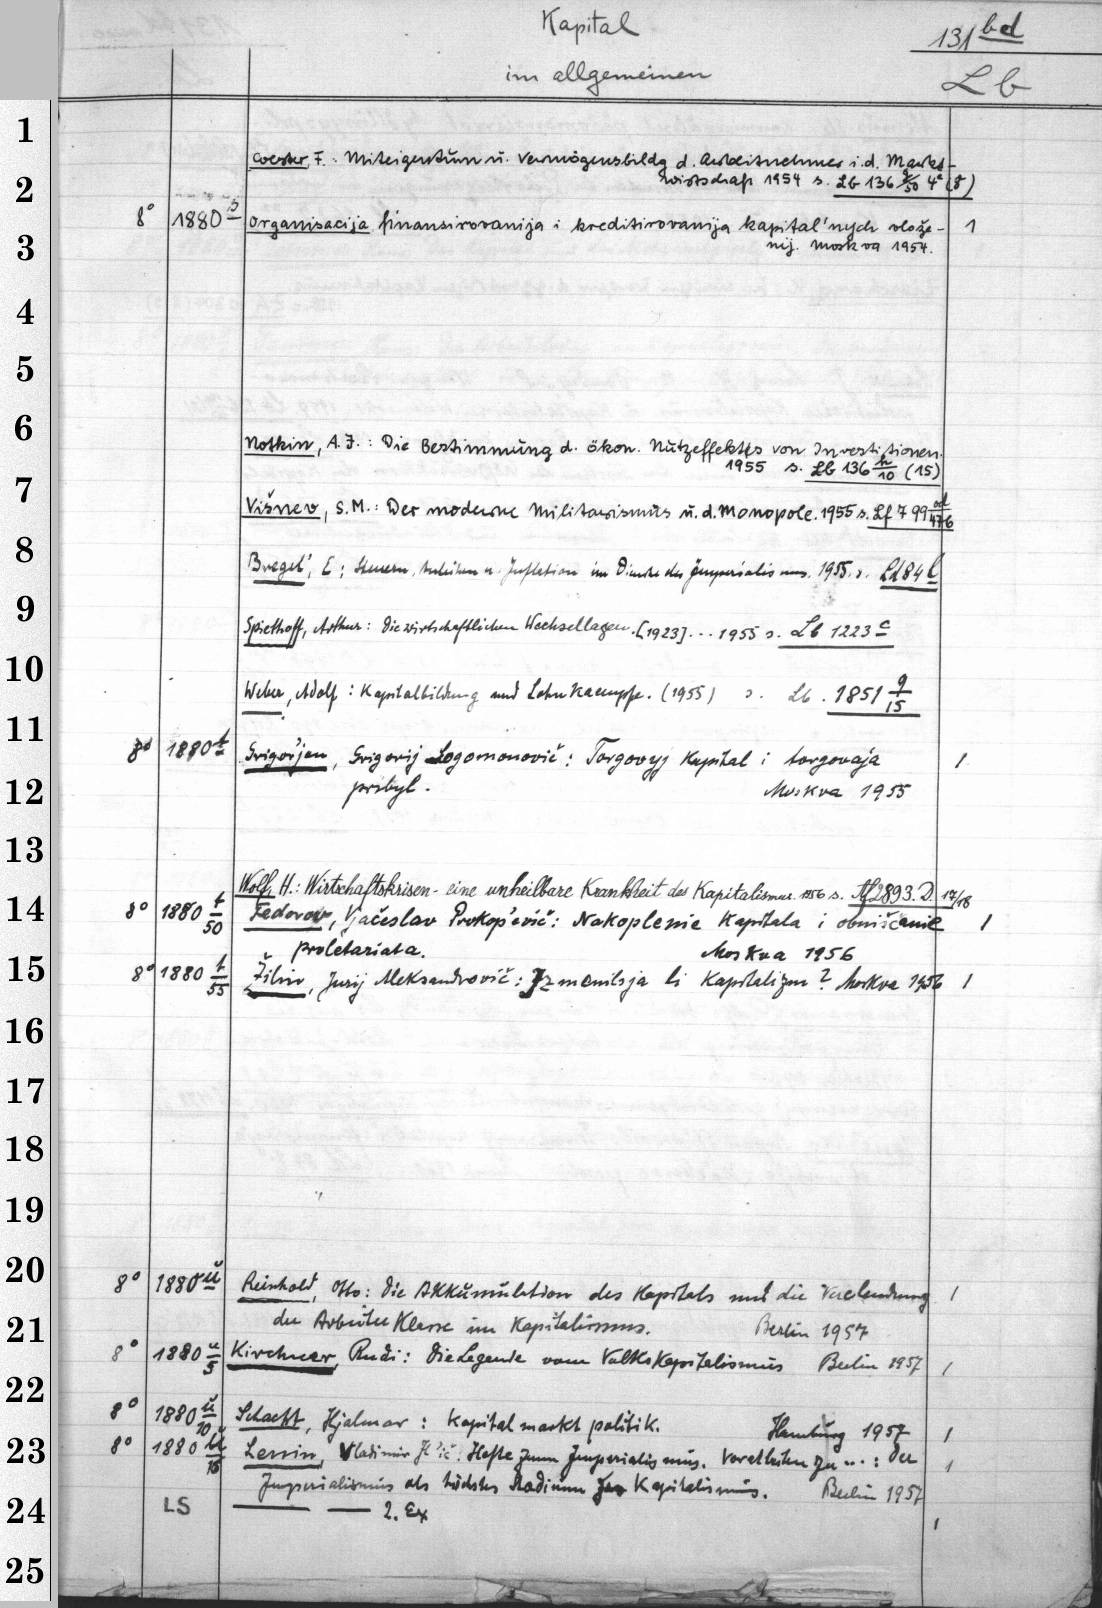 Kapital
131 bd
im allgemeinen
Lb
1
Coester, F.: Miteigentum u. Vermögensbildg d. Arbeitnehmer i.d. Markt-
2
wirtschaft 1954 s. Lb 136 g/50 4° (8)
8° 1880 s Organisacija finansirovanija i kreditirovanija kapital'nych vlože- 1
3
nij. Moskva 1954.
4
5
6
Notkin, A.I.: Die Bestimmung d. ökon. Nutzeffektes von Investitionen.
1955 s. Lb 136 h/10 (15)
7
Višnev, S.M.: Der moderne Militarismus u. d. Monopole. 1955 s. Lf 799 od/476
8
Bregel', E.: Steuern, Anleihen u. Inflation im Dienste des Imperialismus. 1955. s. Ld 84 l
9
Spiethoff, Arthur: Die wirtschaftlichen Wechsellagen. [1923] ... 1955 s. Lb 1223 c
10
Weber, Adolf: Kapitalbildung und Lohnkaempfe. (1955) s. Lb. 1851 g/15
11
8° 1880 t Grigor'jan, Grigorij Sogomonovič: Torgovyj Kapital i torgovaja 1
12
pribyl. Moskva 1955
13
Wolf, H.: Wirtschaftskrisen - eine unheilbare Krankheit des Kapitalismus. 1956 s. Af 2893. D. 17/18
14
8° 1880 t/50 Fedorov, Vjačeslav Prokop'evič: Nakoplenie Kapitala i obniščanie 1
proletariata. Moskva 1956
15
8° 1880 t/55 Žilin, Jurij Aleksandrovič: Izmenilsja li Kapitalizm? Moskva 1956 1
16
17
18
19
20
8° 1880 u Reinhold, Otto: Die Akkumulation des Kapitals und die Verelendung 1
21
der Arbeiterklasse im Kapitalismus. Berlin 1957
8° 1880 u/5 Kirchner, Rudi: Die Legende vom Volkskapitalismus Berlin 1957 1
22
8° 1880 u/10 Schacht, Hjalmar: Kapitalmarktpolitik. Hamburg 1957 1
23
8° 1880 u/15 Lenin, Vladimir Il'ič: Hefte zum Imperialismus. Vorarbeiten zu ...: Der 1
Imperialismus als höchstes Stadium des Kapitalismus. Berlin 1957
24
LS — — 2. Ex 1
25